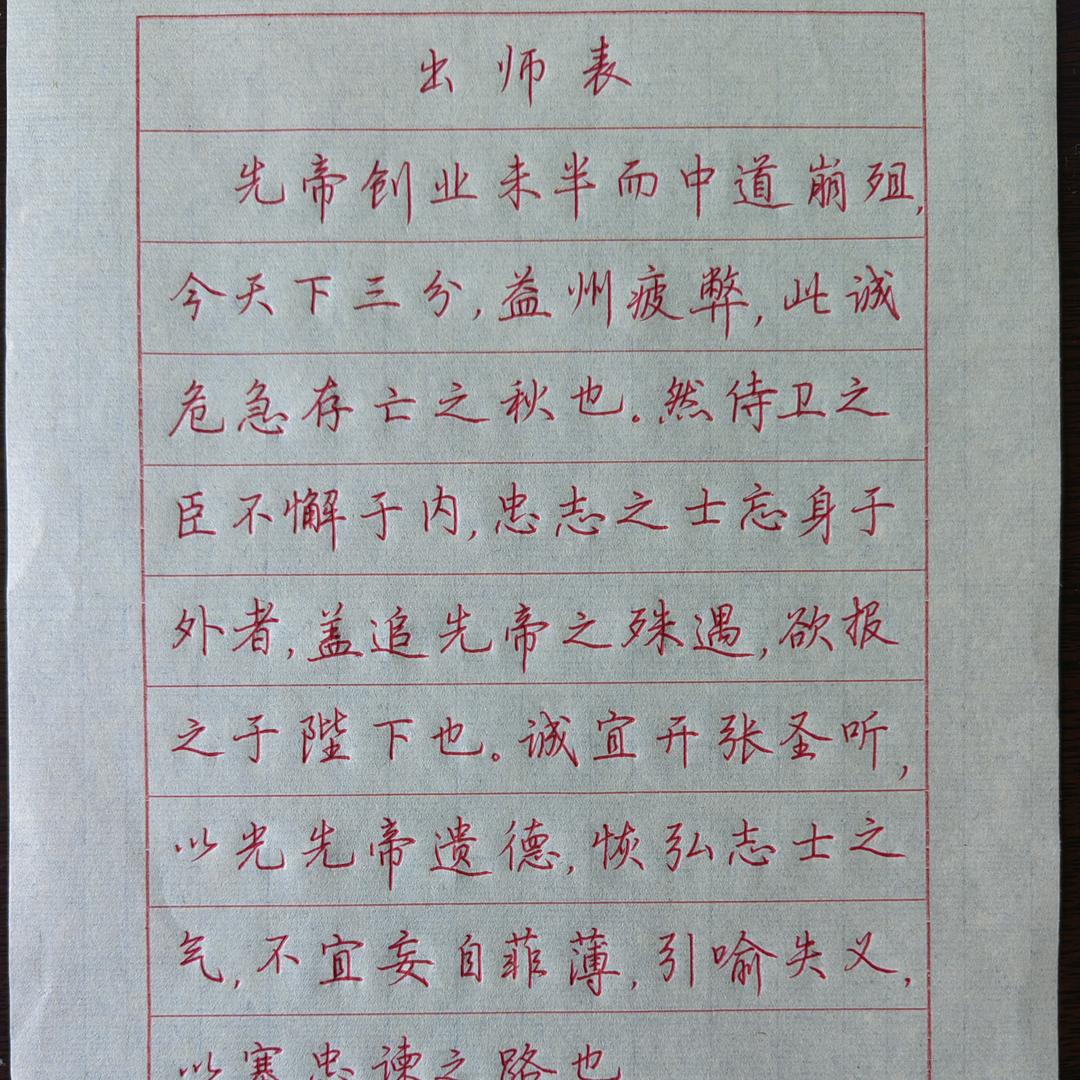 出师表
先帝创业未半而中道崩殂,
今天下三分,益州疲弊,此诚
危急存亡之秋也。然侍卫之
臣不懈于内,忠志之士忘身于
外者,盖追先帝之殊遇,欲报
之于陛下也。诚宜开张圣听,
以光先帝遗德,恢弘志士之
气,不宜妄自菲薄,引喻失义,
以塞忠谏之路也